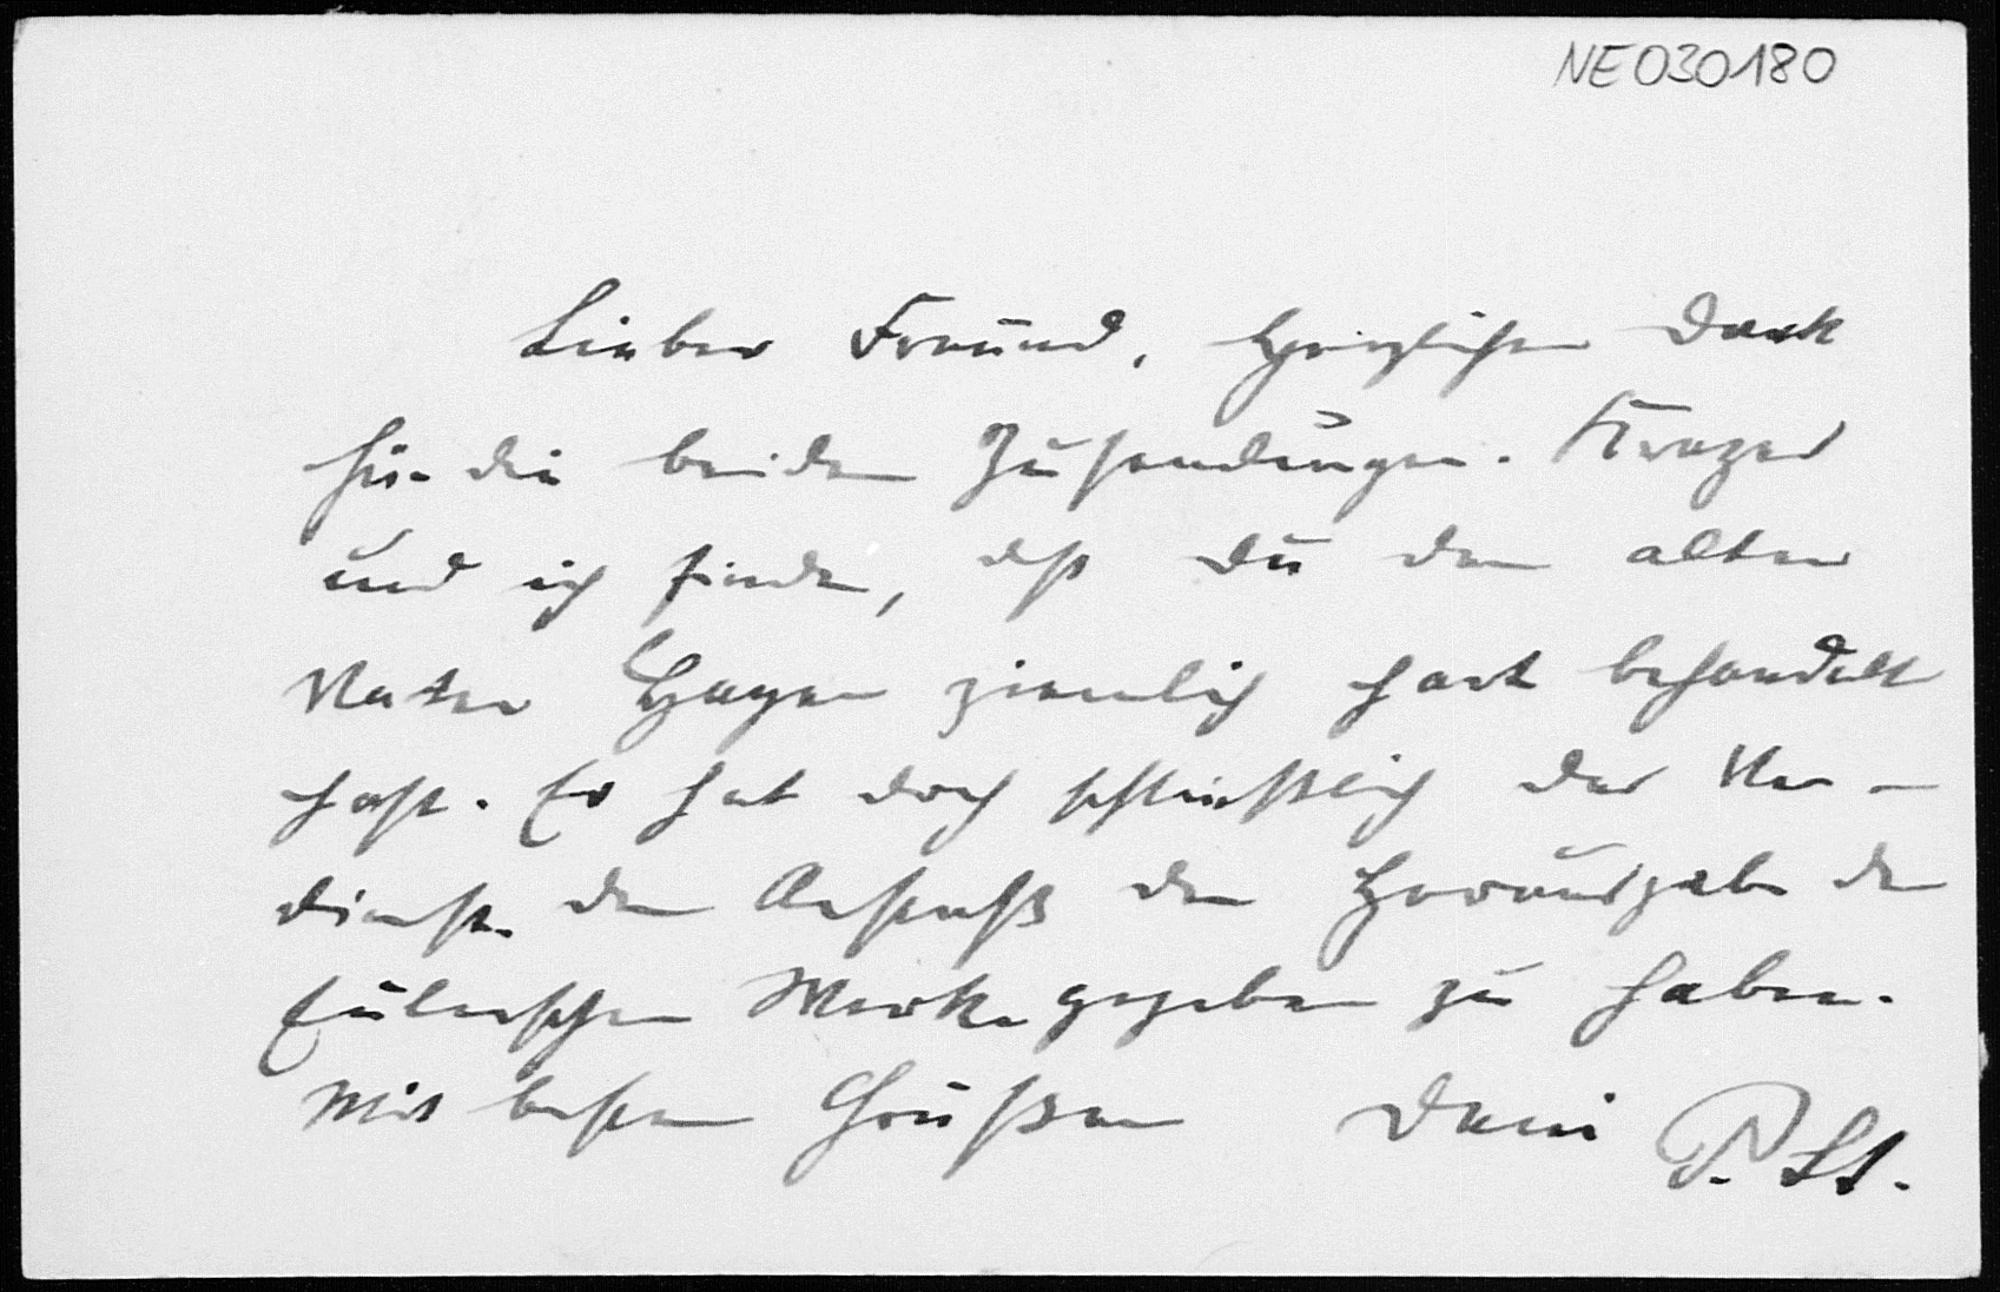 NE030180
Lieber Freund, Herzlichen Dank
für die beiden Zusendungen. Krazer
und ich finden, dß Du den alten
Vater Hagen ziemlich hart behandelt
hast. Er hat doch schließlich das Ver-
dienst den Anstoß der Herausgabe der
Eulerschen Werke gegeben zu haben.
Mit besten Grüßen Dein P. St.